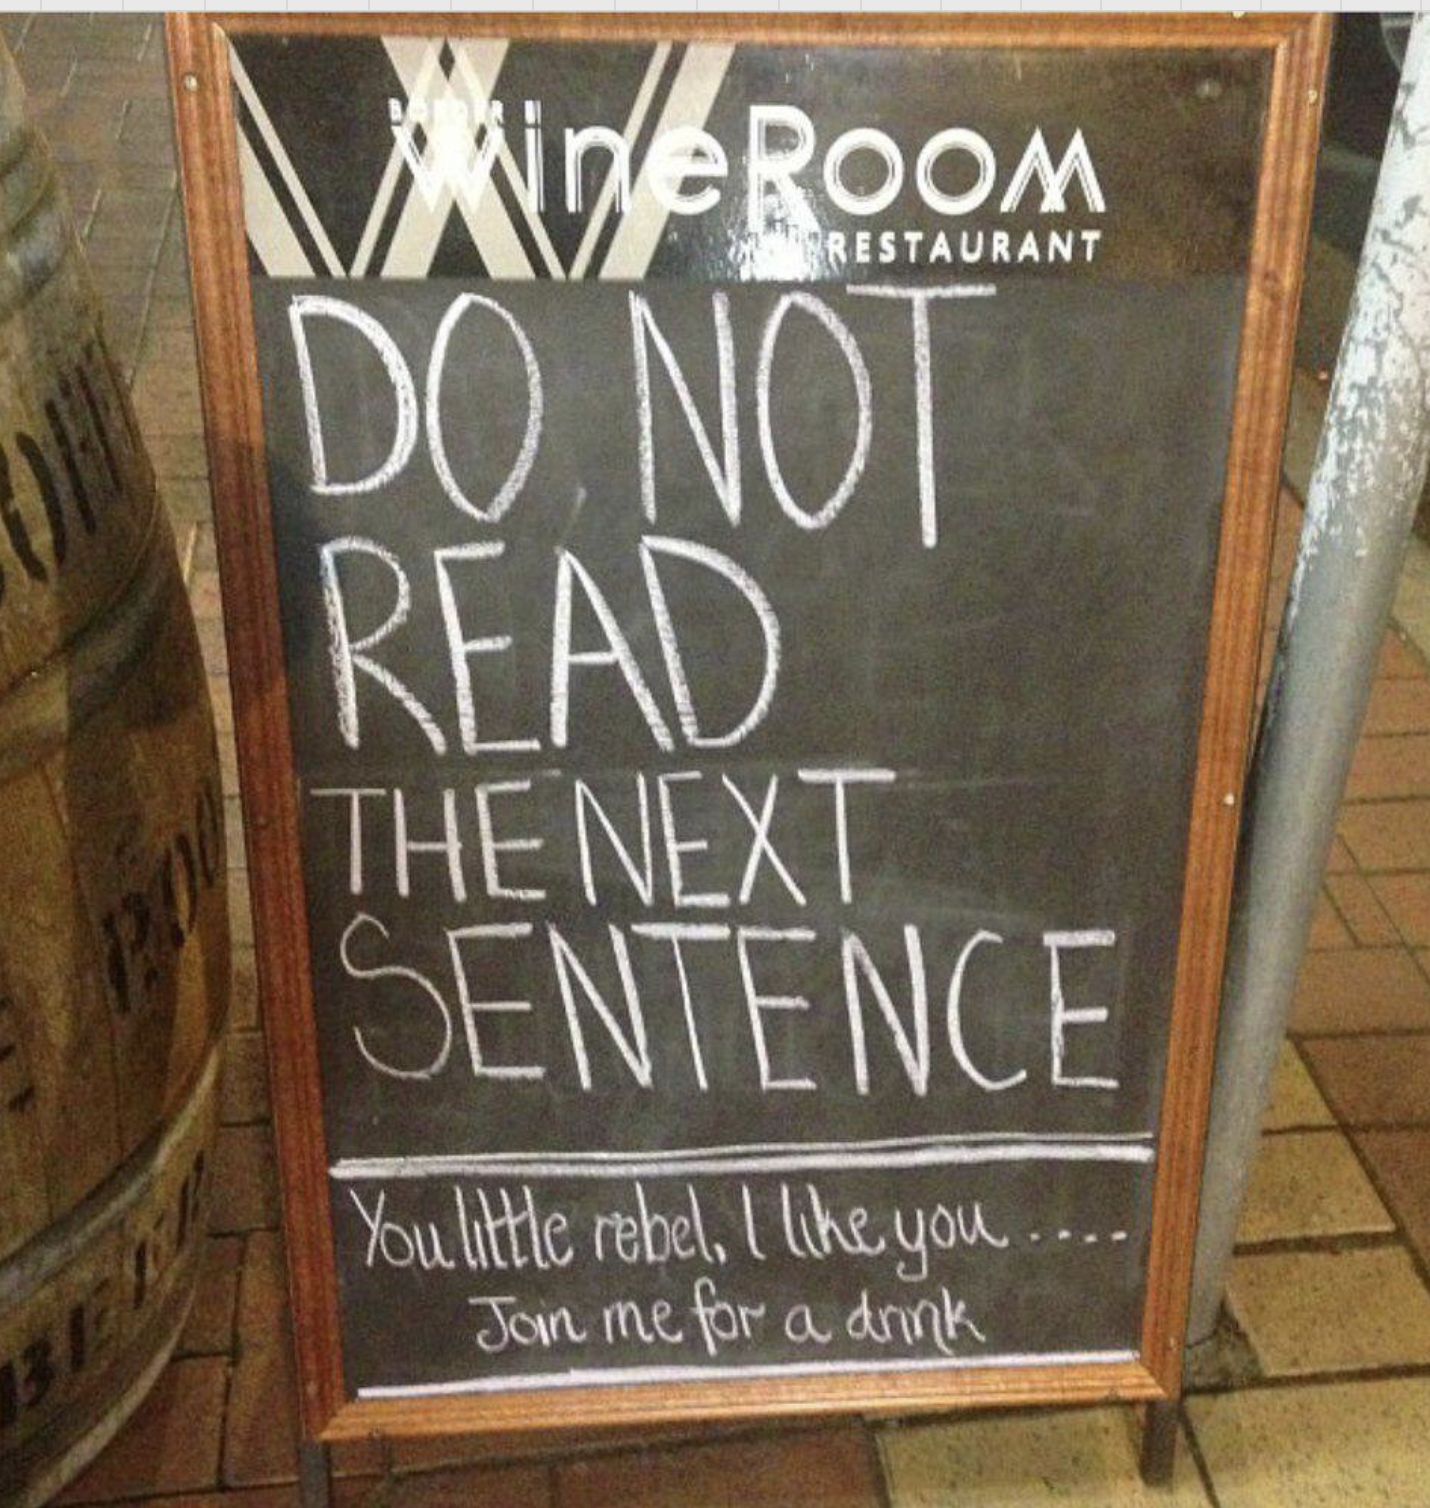 WineRoom
RESTAURANT
DO NOT
READ
THE NEXT
SENTENCE
You little rebel, I like you .....
Join me for a drink